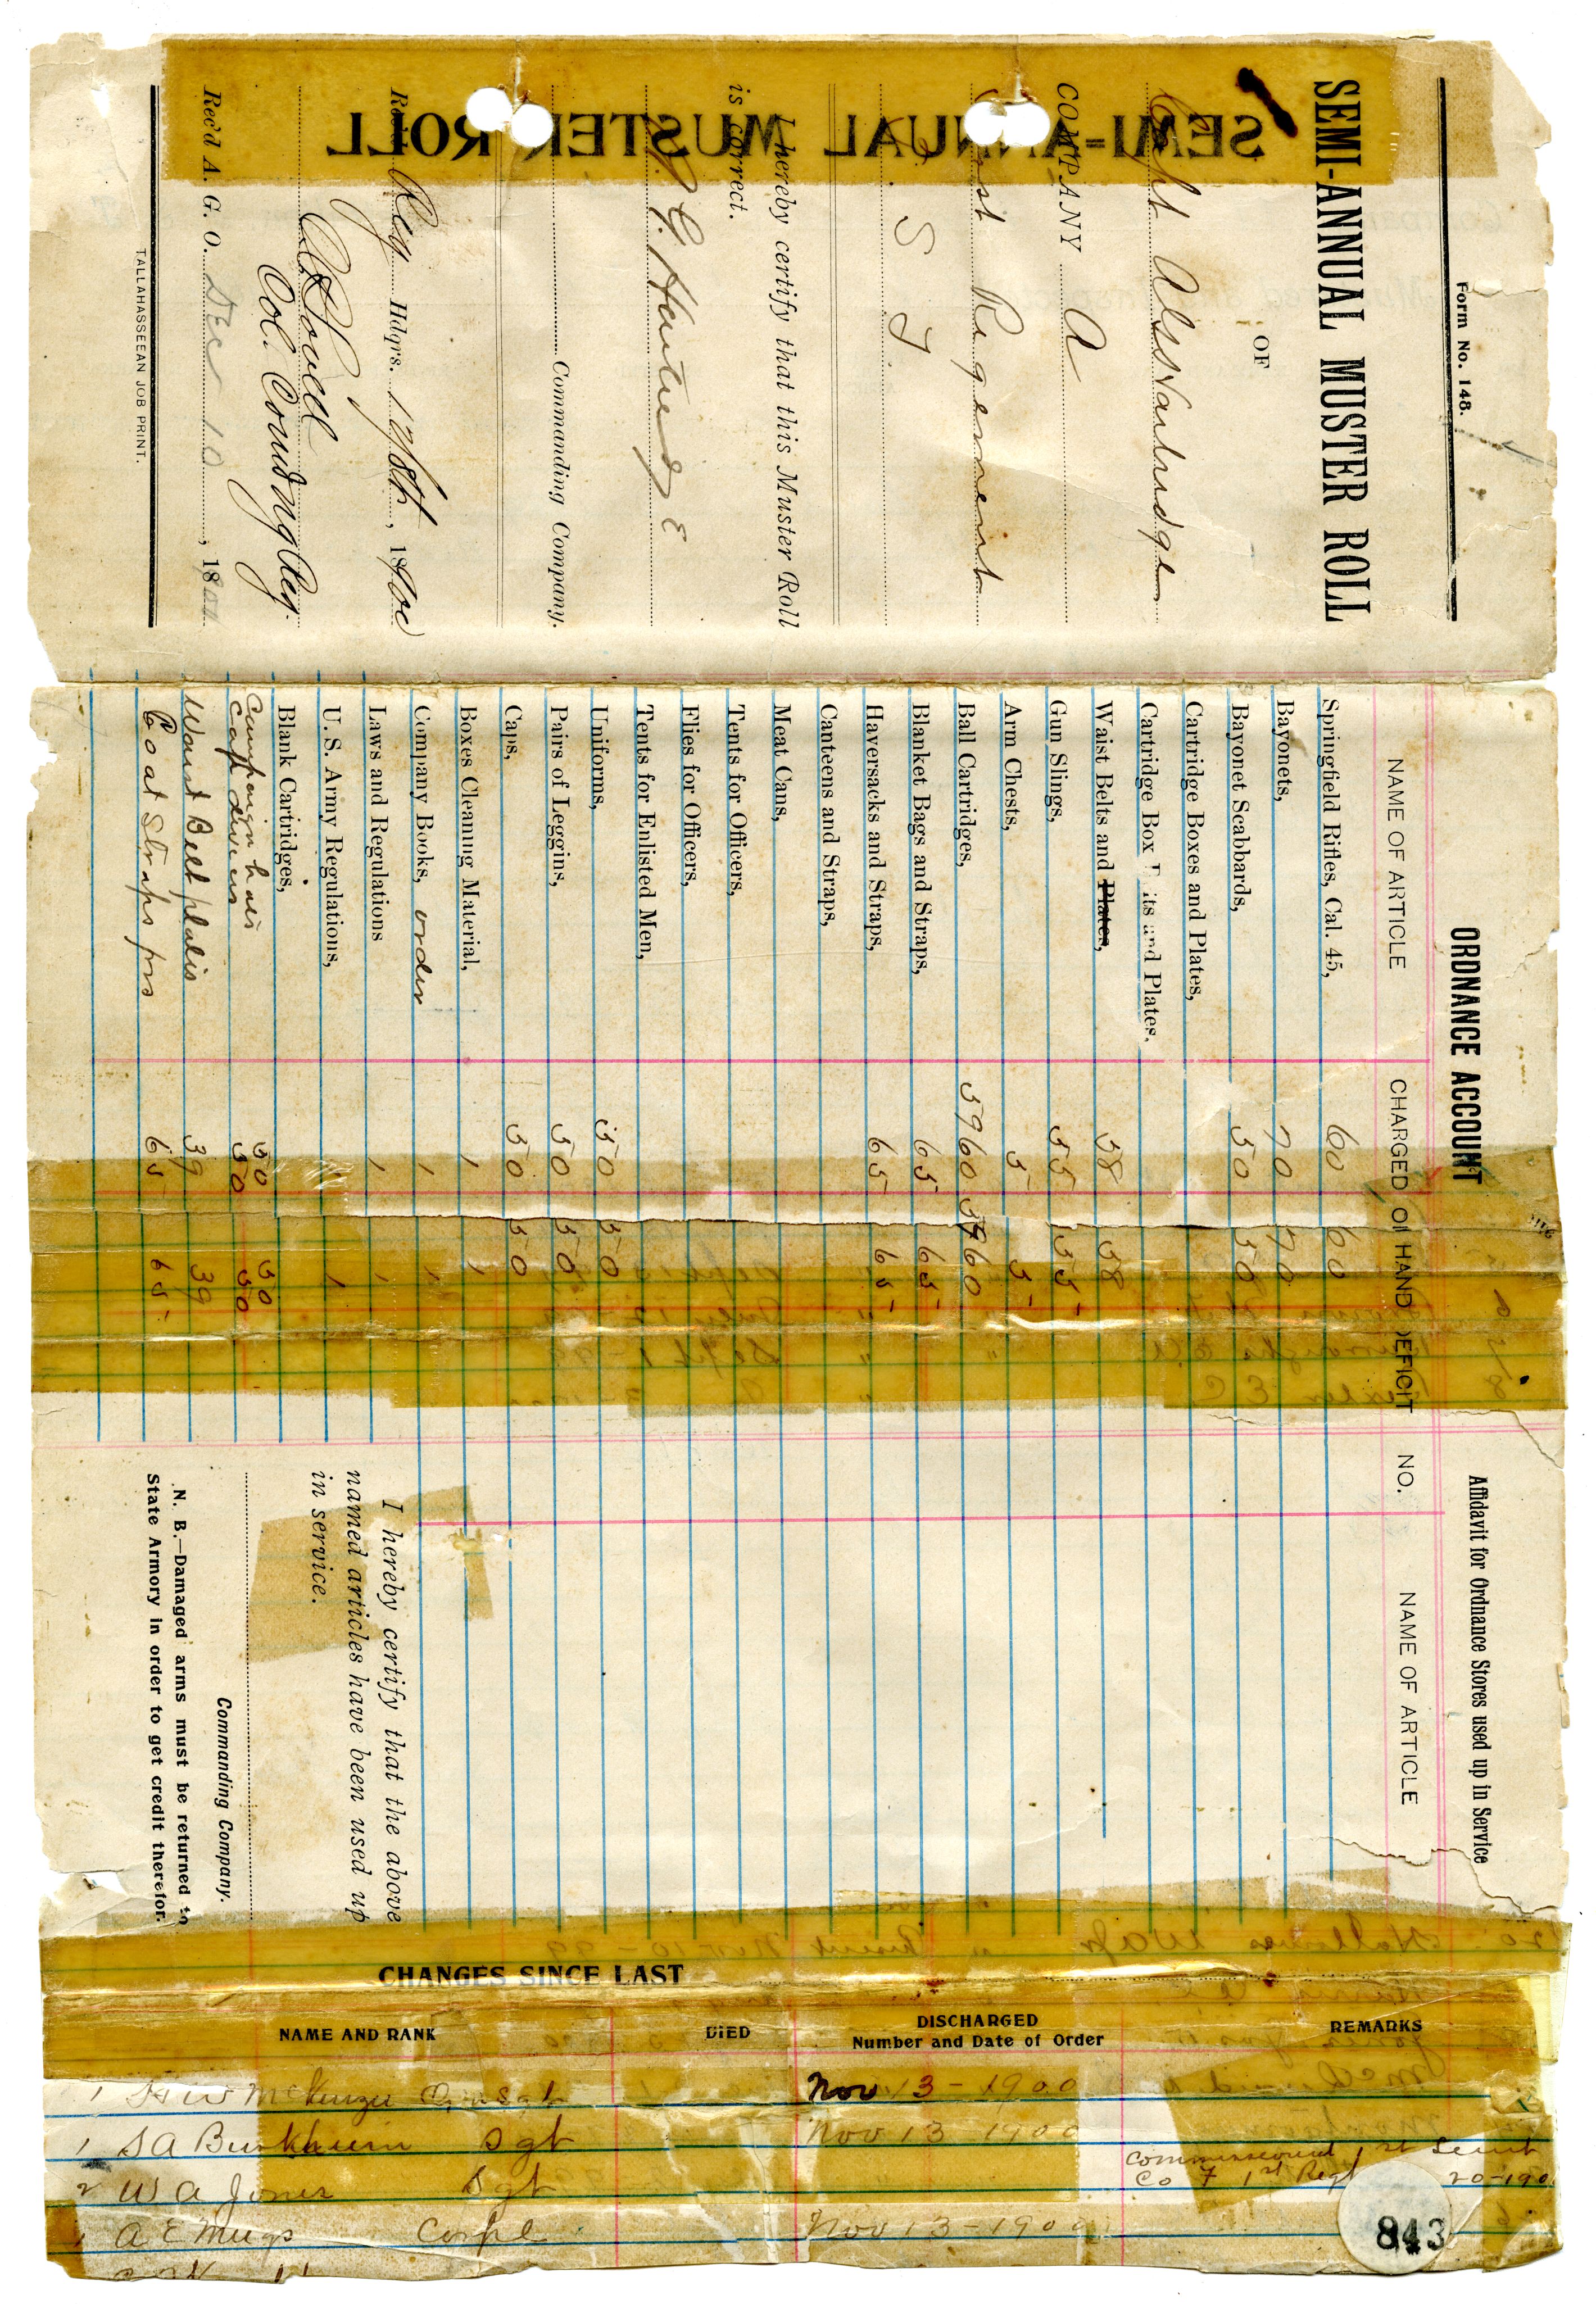 Form No. 148.
SEMI-ANNUAL MUSTER ROLL
OF
Capt
COMPANY A
First Regement
S T
I hereby certify that this Muster Roll
is correct.
Commanding Company.
Reg Hdqrs. 12/8th, 1900
Col. Comdng Reg.
Rec'd A. G. O. Dec 10, 1800
TALLAHASSEEAN JOB PRINT.
ORDNANCE ACCOUNT
NAME OF ARTICLE CHARGED ON HAND DEFICIT
Springfield Rifles, Cal. 45, 60 60
Bayonets, 70 70
Bayonet Scabbards, 50 50
Cartridge Boxes and Plates,
Cartridge Box and Plates,
Waist Belts and Plates, 58 58
Gun Slings, 55 55
Arm Chests, 5 5
Ball Cartridges, 5960 5960
Blanket Bags and Straps, 65 65
Haversacks and Straps, 65 65
Canteens and Straps,
Meat Cans,
Tents for Officers,
Flies for Officers,
Tents for Enlisted Men,
Uniforms, 50 50
Pairs of Leggins, 50 50
Caps, 50 50
Boxes Cleaning Material, 1 1
Company Books, order 1 1
Laws and Regulations 1 1
U. S. Army Regulations, 1 1
Blank Cartridges,
Campaign hats 50 50
cap 50 50
Waist Belt plates 39 39
Coat Straps prs 65 65
Affidavit for Ordnance Stores used up in Service
NO. NAME OF ARTICLE
I hereby certify that the above
named articles have been used up
in service.
Commanding Company.
N. B.—Damaged arms must be returned to
State Armory in order to get credit therefor.
CHANGES SINCE LAST
NAME AND RANK DIED DISCHARGED REMARKS
Number and Date of Order
1 McKenzie Nov 13-1900
1 S A Sgt Nov 13-1900
2 W A Jones Sgt Commissioned 1st Lieut
Co F 1st Regt 20-190
1 A E Corpl Nov 13-1900
843